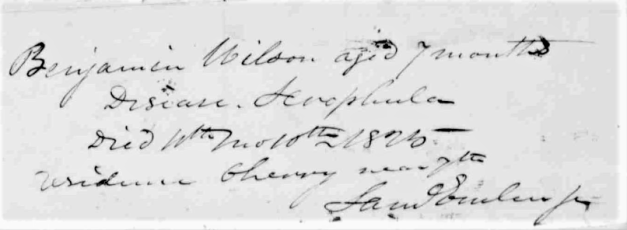 Benjamin Wilson aged 7 months
Disease. Scrophula
Died 11th mo 10th 1825
residence Cherry near 7th
Saml Emlen Jr